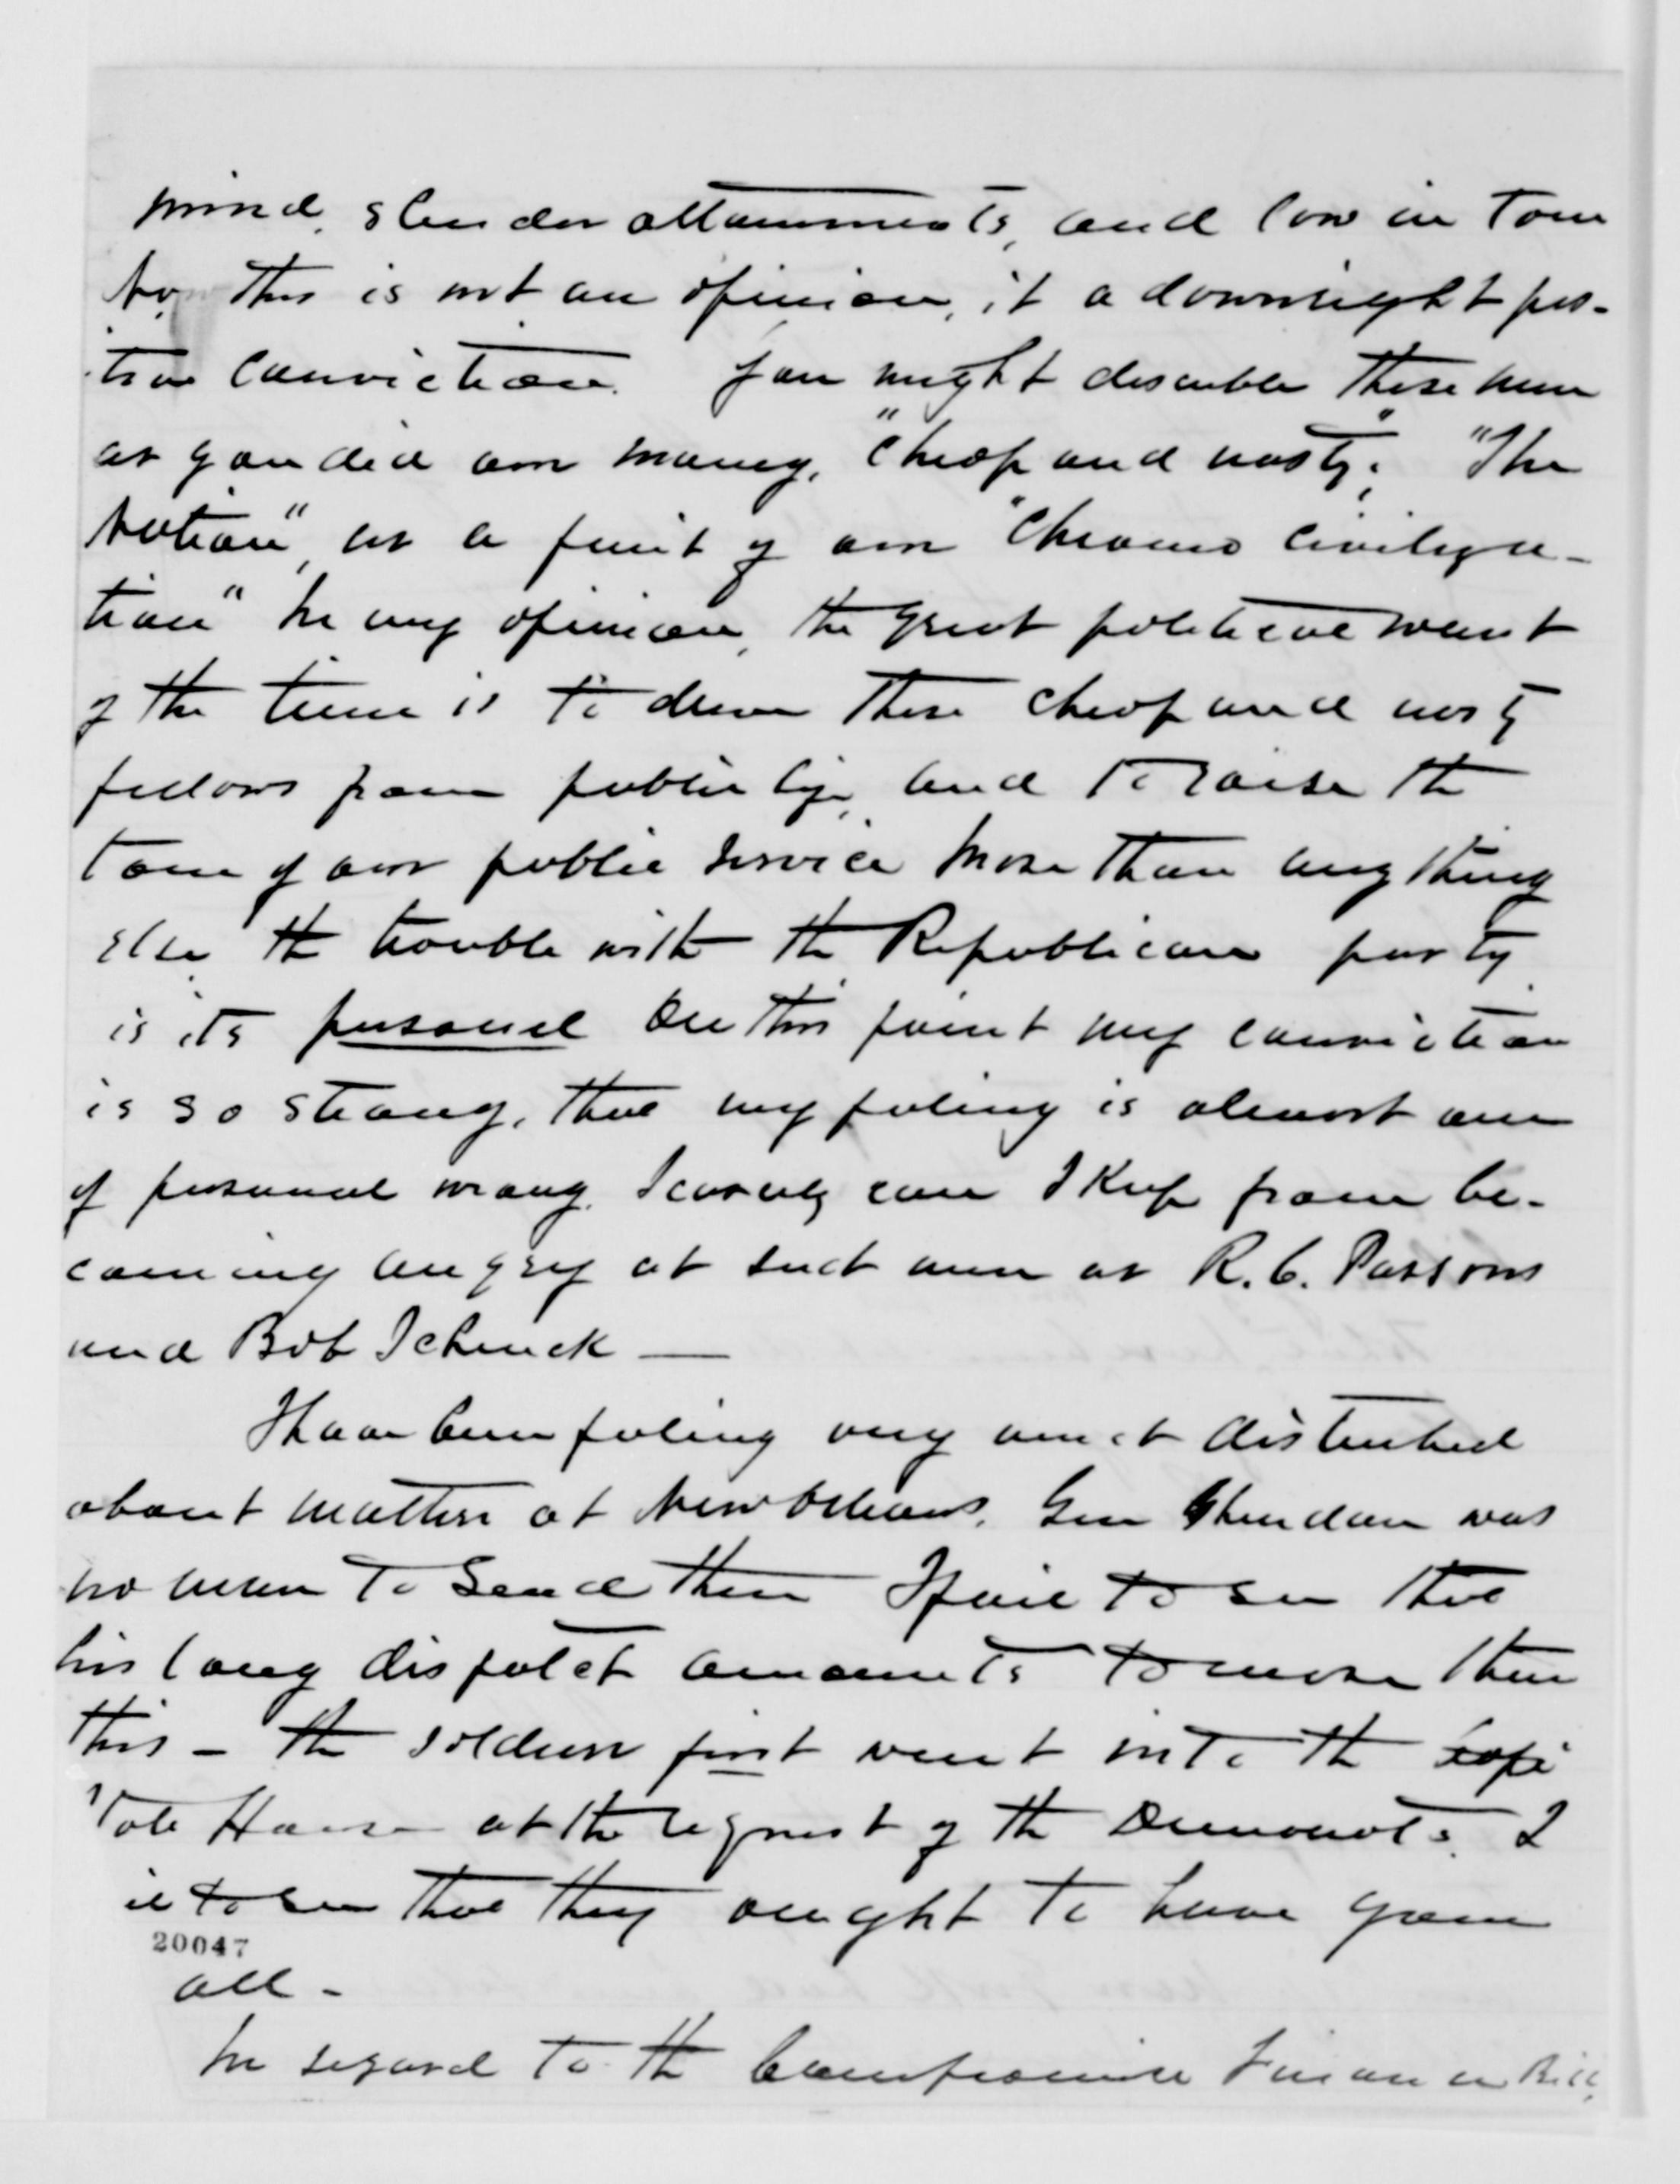 mind, slender attainments, and low in tone
Now this is not an opinion, it a downright pos-
itive conviction. You might describe these men
as you did our money, "cheap and nasty"; "The
Nation", as a fruit of our "Chromo Civiliza-
tion" In my opinion, the great political want
of the time is to drive these cheap and nasty
fellows from public life, and to raise the
tone of our public service more than anything
else the trouble with the Republican party
is its personel On this point my conviction
is so strong, that my feeling is almost one
of personal wrong. Scarcely can I keep from be-
coming angry at such men as R. C. Parsons
and Bob Schenck —
I have been feeling very much disturbed
about matters at New Orleans. Gen Sheridan was
no man to send there I fail to see that
his long dispatch amounts to more than
this – the soldiers first went into the
State House at the request of the Democrats. I
il to see that they ought to have gone
20047
all –
In regard to the Compromise Finance Bill,